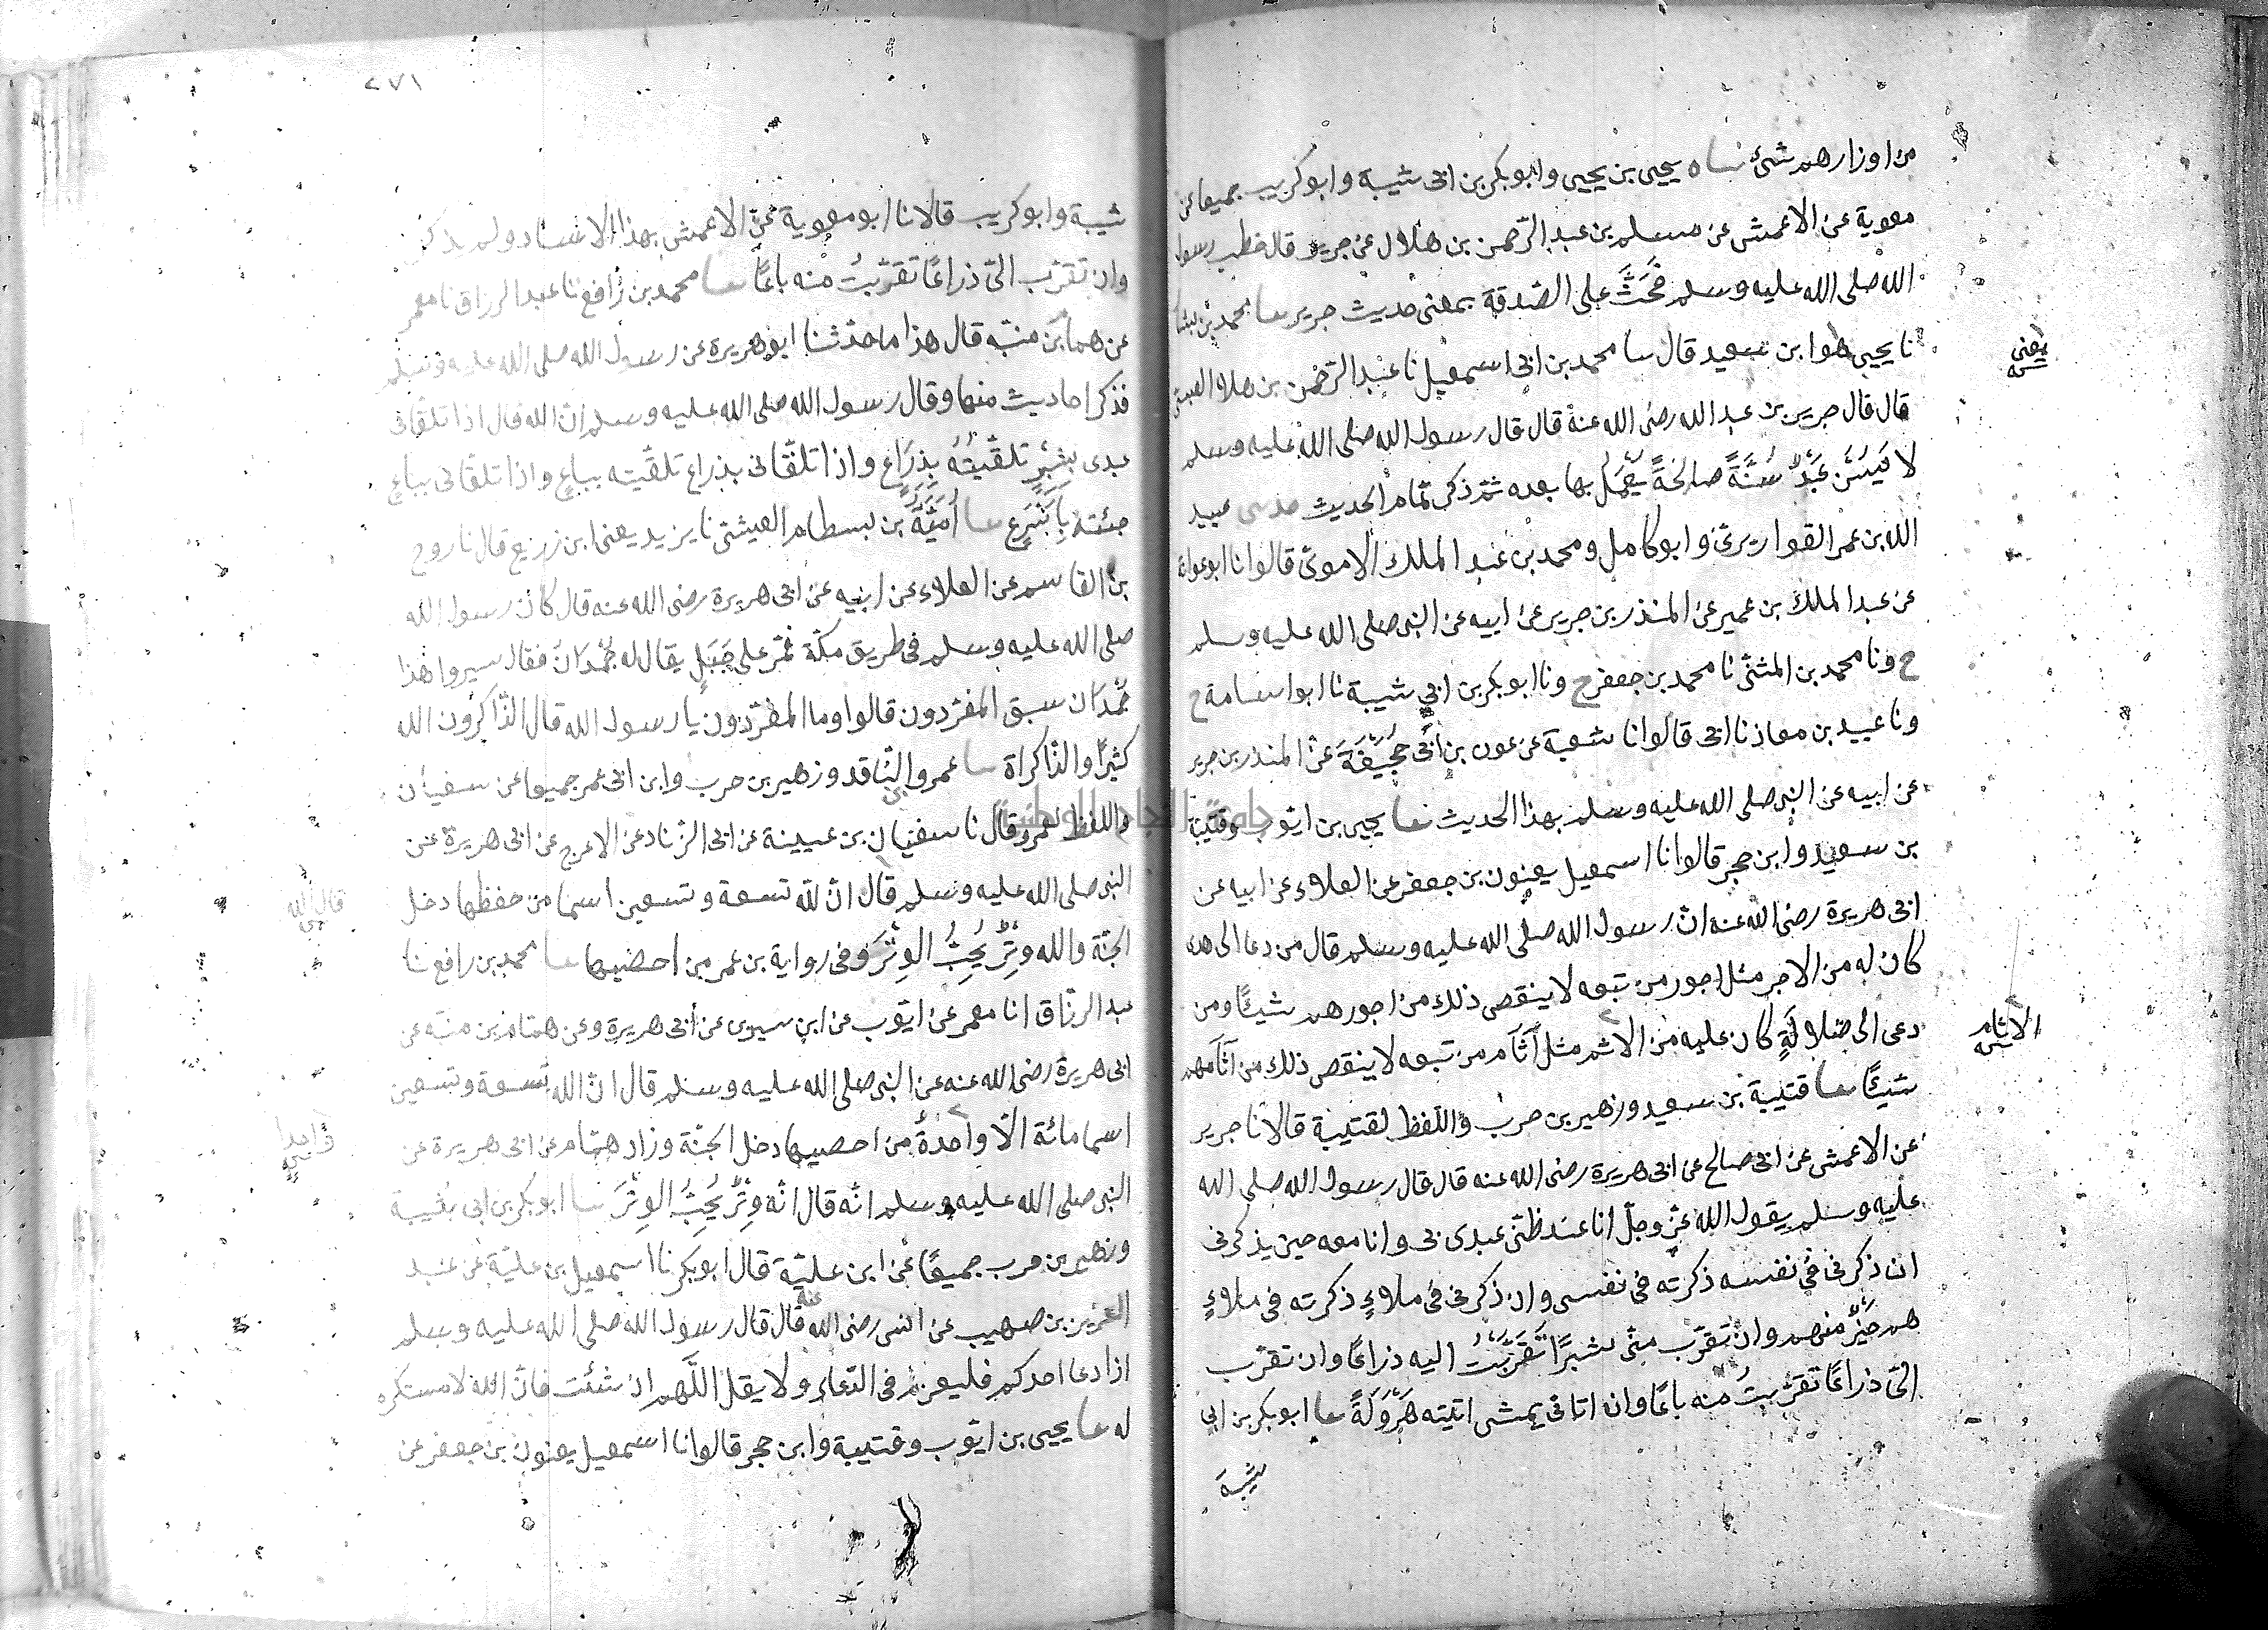 من اوزارهم شئ نا ه يحيى بن يحيى وابو بكر بن ابى شيبة وابو كريب جميعا عن
معوية عن الاعمش عن مسلم بن عبد الرّحمن بن هلال عن جرير قال خطب رسول
الله صلى الله عليه وسلم فَحَثَّ على الصّدقة بمعنى حديث جرير نا محمد بن بشار
نا يحيى هوا بن سعيد قال نا محمد بن ابى اسمعيل نا عبد الرّحمن بن هلال العبسى
يعنى
قال قال جرير بن عبد الله رضى الله عنه قال قال رسول الله صلى الله عليه وسلم
لا يَسُنّ عَبْدٌ سُنَّةً صالحَةً يُعْمَلُ بها بعده ثمّ ذكر تمام الحديث حدثنى عبيد
الله بن عمر القواريرىّ وابو كامل ومحمد بن عبد الملك الاموىّ قالوا نا ابو عوانة
عن عبد الملك بن عمير عن المنذر بن جرير عن ابيه عن النبى صلى الله عليه وسلم
ح ونا محمد بن المثنّى نا محمد بن جعفر ح ونا ابو بكر بن ابى شيبة نا ابو اسامة ح
ونا عبيد بن معاذ نا ابى قالوا نا شعبة عن عون بن أبى جُحَيْفَةَ عن المنذر بن جرير
عن ابيه عن النبى صلى الله عليه وسلم بهذا الحديث نا يحيى بن ايّوب وقتيبة
بن سعيد وابن حجر قالوا نا اسمعيل يعنون بن جعفر عن العلاء عن ابيه عن
ابى هريرة رضى الله عنه انّ رسول الله صلى الله عليه وسلم قال من دعا الى هدى
كان له من الاجر مثل اجور من تبعه لا ينقص ذلك من اجورهم شيئًا ومن
دعى الى ضلالَةٍ كان عليه من الاثم مثل آثام من تبعه لا ينقص ذلك من آثامهم
الاثام
شيئًا نا قتيبة بن سعيد وزهير بن حرب واللّفظ لقتيبة قالا نا جرير
عن الاعمش عن ابى صالح عن ابى هريرة رضى الله عنه قال قال رسول الله صلى الله
عليه وسلم يقول الله عزّ وجلّ انا عند ظنّ عبدى بى وانا معه حين يذكرنى
ان ذكرنى فى نفسه ذكرته فى نفسى وان ذكرنى فى ملاءٍ ذكرته فى ملاءٍ
هم خيرٌ منهم وان تقرّب منّى شبرًا تَقَرَّبْتُ اليه ذراعًا وان تقرّب
الىّ ذراعًا تقرّبتُ منه باعًا وان اتانى يمشى اتيته هَرْوَلَةً نا ابو بكر بن ابى
شيبة
٢٧١
شيبة وابو كريب قالا نا ابو معوية عن الاعمش بهذا الاسناد ولم يذكر
وان تقرّب الىّ ذراعًا تقرّبتُ منه باعًا نا محمد بن رافع نا عبد الرزاق نا معمر
عن همام بن منبّه قال هذا ما حدّثنا ابو هريرة عن رسول الله صلى الله عليه وسلم
فذكر احاديث منها وقال رسول الله صلى الله عليه وسلم انّ الله قال اذا تلقّانى
عبدى بشِبْرٍ تلقّيتُهُ بِذِرَاعٍ واذا تلقّانى بذراع تلقّيته بباعٍ واذا تلقانى بباعٍ
جئته بِاَسْرَعَ نا أُمَيَّةُ بن بسطام العيشىّ نا يزيد يعنى ابن زريع قال نا روح
بن القاسم عن العلاء عن ابيه عن ابى هريرة رضى الله عنه قال كان رسول الله
صلى الله عليه وسلم فى طريق مكّة فمرّ على جَبَلٍ يقال له جُمْدَان فقال سيروا هذا
جُمْدَان سبق المفرّدون قالوا وما المفرّدون يا رسول الله قال الذّاكرون الله
كثيرًا والذّاكراة نا عمرو النّاقد وزهير بن حرب وابن ابى عمر جميعا عن سفيان
واللفظ لعمرو قال نا سفيان بن عيينة عن ابى الزّناد عن الاعرج عن ابى هريرة عن
النبى صلى الله عليه وسلم قال انّ للّه تسعة وتسعين اسما من حفظها دخل
قال لله
الجنّة والله وِتْرٌ يُحِبُّ الوِتْرَ وفى رواية بن عمر من احصيها نا محمد بن رافع نا
عبد الرزّاق انا معمر عن ايّوب عن ابن سيرى عن أبى هريرة وعن همّام بن منبّه عن
ابى هريرة رضى الله عنه عن النبى صلى الله عليه وسلم قال انّ الله تسعة وتسعين
اسما مائة الّا واحدةً من احصيها دخل الجنّة وزاد همّام عن ابى هريرة عن
واحدا
النبى صلى الله عليه وسلم انّه قال انّه وِتْرٌ يُحِبُّ الوِتْرَ نا ابو بكر بن ابى شيبة
وزهير بن حرب جميعًا عن ابن عليّة قال ابو بكر نا اسمعيل بن عليّة عن عبد
العزيز بن صهيب عن انس رضى الله عنه قال قال رسول الله صلى الله عليه وسلم
اذا دعا احدكم فليعزم فى الدّعاء ولا يقل اللّهم ان شئت فانّ الله لا مستكره
له نا يحيى بن ايّوب وقتيبة وابن حجر قالوا نا اسمعيل يعنون بن جعفر عن